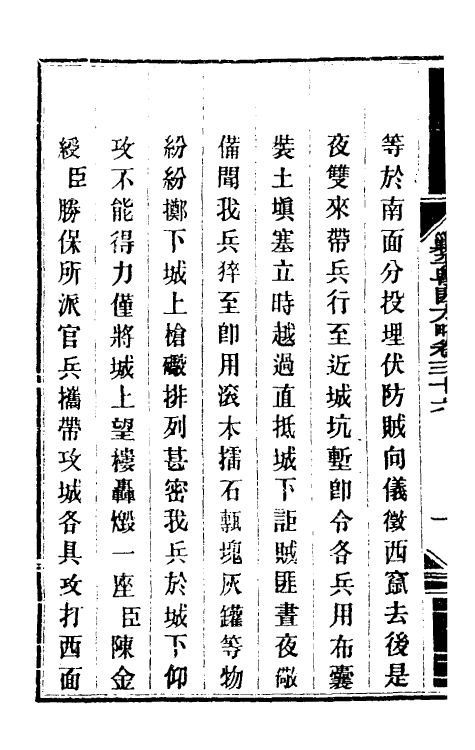 等於南面分投埋伏防賊向儀徵西竄去後是
夜雙來帶兵行至近城坑塹卽令各兵用布囊
裝土塡塞立時越過直抵城下詎賊匪晝夜儆
備聞我兵猝至卽用滾木擂石甎塊灰罐等物
紛紛擲下城上槍礮排列甚密我兵於城下仰
攻不能得力僅將城上望樓轟燬一座臣陳金
綬臣勝保所派官兵攜帶攻城各具攻打西面
剿平粵匪方略卷三十六
一